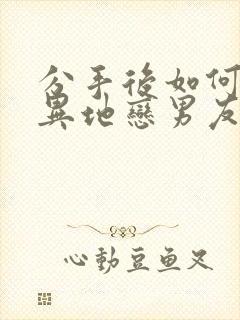 分手後如何
異地戀男友
心動豆魚又